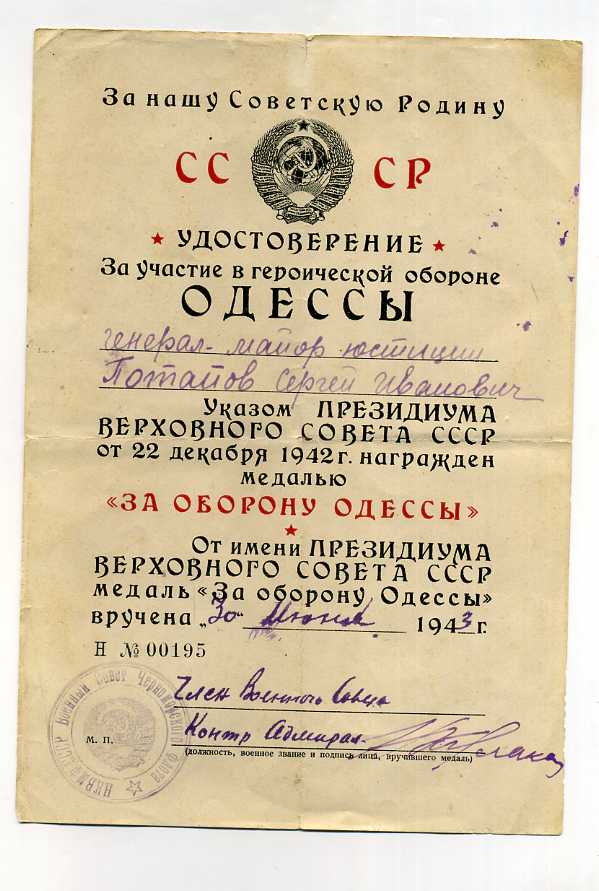 За нашу Советскую Родину
СССР
УДОСТОВЕРЕНИЕ
За участие в героической обороне
ОДЕССЫ
генерал-майор юстиции
Потапов Сергей Иванович
Указом ПРЕЗИДИУМА
ВЕРХОВНОГО СОВЕТА СССР
от 22 декабря 1942 г. награжден
медалью
«ЗА ОБОРОНУ ОДЕССЫ»
От имени ПРЕЗИДИУМА
ВЕРХОВНОГО СОВЕТА СССР
медаль «За оборону Одессы»
вручена „30" Июня 1943 г.
Н № 00195
Член Военного Совета
Контр Адмирал
М. П.
(должность, военное звание и подпись лица, вручившего медаль)
НКВМФ СССР Военный Совет Черноморского Флота